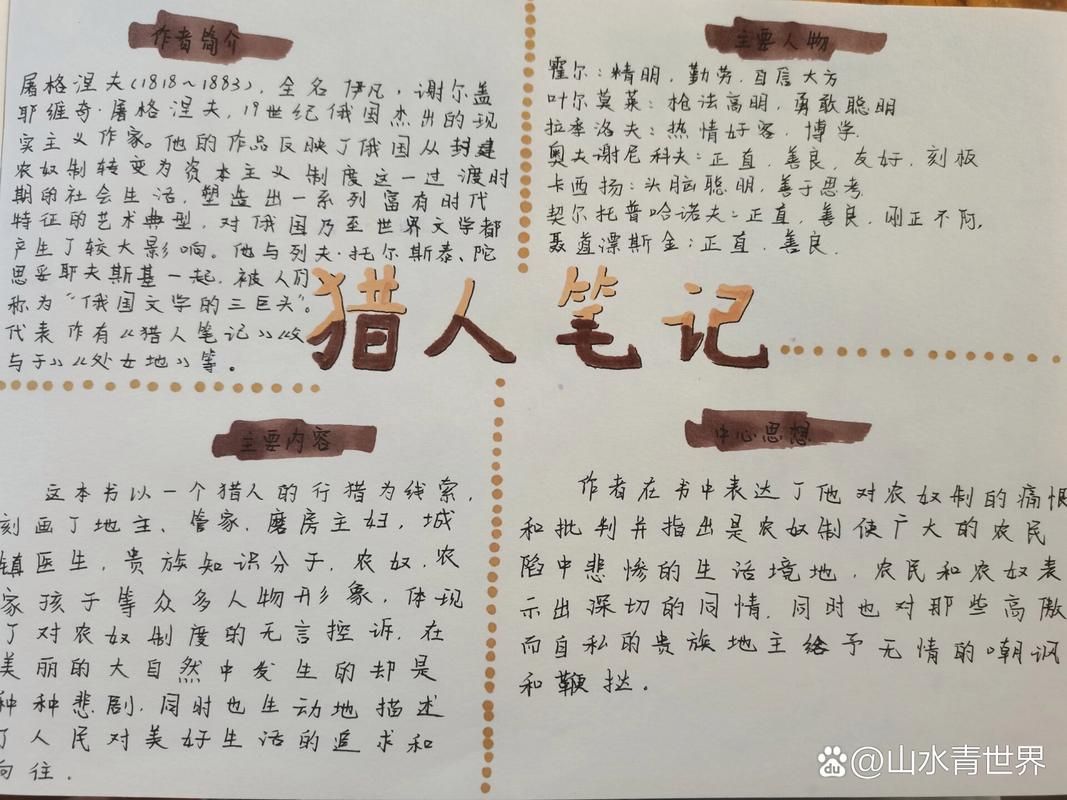 作者简介
屠格涅夫(1818~1883),全名伊凡·谢尔盖
耶维奇·屠格涅夫,19世纪俄国杰出的现
实主义作家。他的作品反映了俄国从封建
农奴制转变为资本主义制度这一过渡时
期的社会生活,塑造出一系列富有时代
特征的艺术典型,对俄国乃至世界文学都
产生了较大影响。他与列夫·托尔斯泰、陀
思妥耶夫斯基一起,被人们
称为“俄国文学的三巨头”。
代表作有《猎人笔记》《父
与子》《处女地》等。
主要人物
霍尔:精明,勤劳,自信大方
叶尔莫莱:枪法高明,勇敢聪明
拉季洛夫:热情好客,博学.
奥夫谢尼科夫:正直,善良,友好,刻板
卡西扬:头脑聪明,善于思考
契尔托普哈诺夫:正直,善良,刚正不阿.
聂道漂斯金:正直,善良.
猎人笔记
主要内容
这本书以一个猎人的行猎为线索,
刻画了地主、管家,磨房主妇,城
镇医生,贵族知识分子,农奴,农
家孩子等众多人物形象,体现
了对农奴制度的无言控诉,在
美丽的大自然中发生的却是
种种悲剧,同时也生动地描述
了人民对美好生活的追求和
向往.
中心思想
作者在书中表达了他对农奴制的痛恨
和批判并指出是农奴制使广大的农民
陷中悲惨的生活境地,农民和农奴表
示出深切的同情,同时也对那些高傲
而自私的贵族地主给予无情的嘲讽
和鞭挞。
Baidu @山水青世界